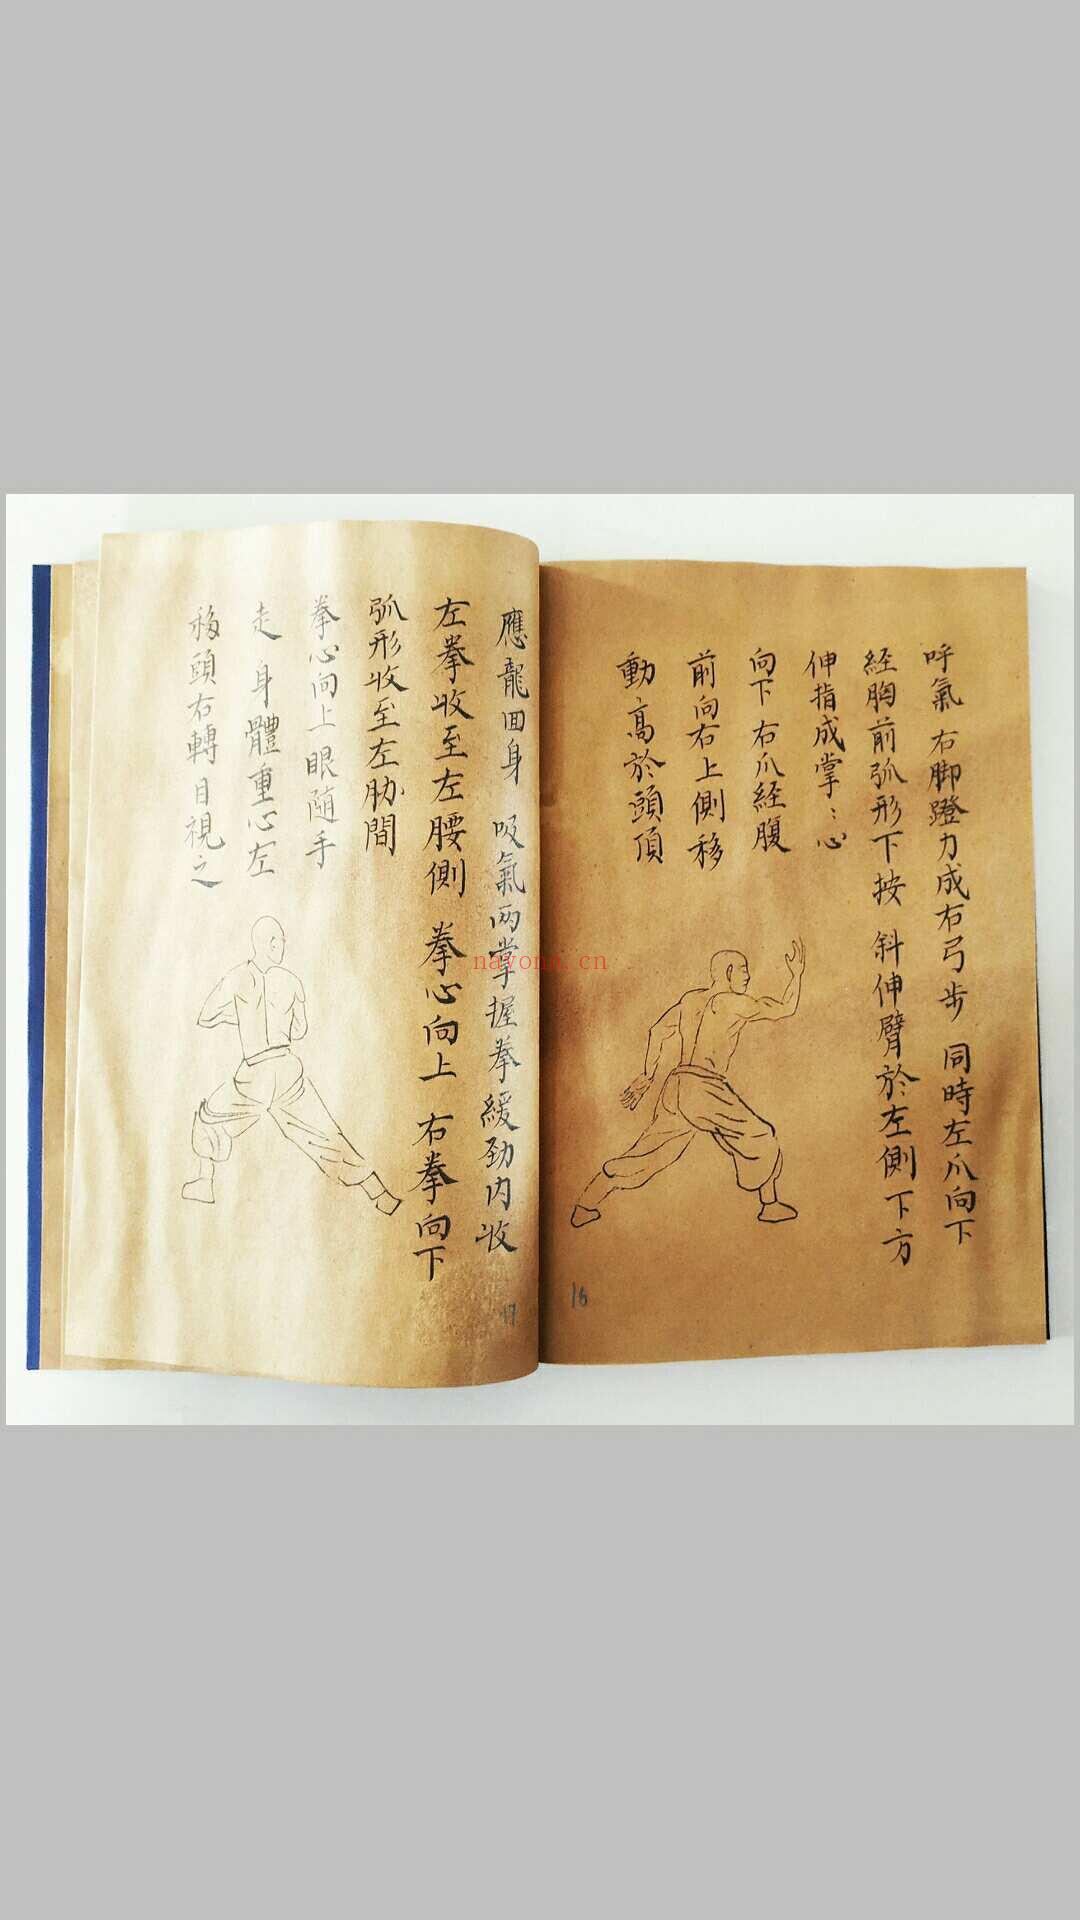 呼氣 右脚蹬力成右弓步 同時左爪向下
经胸前弧形下按 斜伸臂於左側下方
伸指成掌：心
向下 右爪经腹
前向右上側移
動高於頭頂
16
應龍回身 吸氣两掌握拳緩勁内收
左拳收至左腰側 拳心向上 右拳向下
弧形收至左胁間
拳心向上眼随手
走 身體重心左
移頭右轉目視之
17
nayona.cn